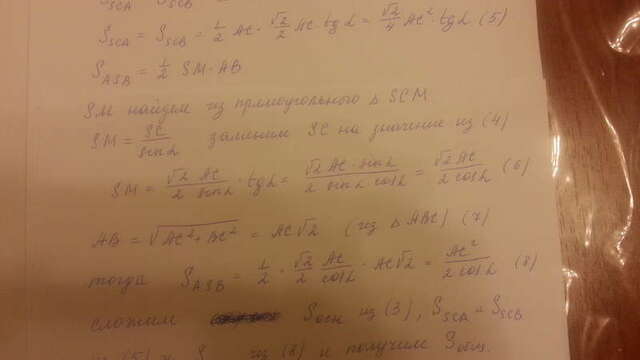 S_SCA = S_SCB = 1/2 AC · √2/2 AC · tg α = √2/4 AC² · tg α (5)
S_ASB = 1/2 SM · AB
SM найдем из прямоугольного Δ SCM
SM = SC/sin α заменим SC на значение из (4)
SM = √2 AC/2 sin α · tg α = √2 AC · sin α/2 sin α · cos α = √2 AC/2 cos α (6)
AB = √AC² + BC² = AC√2 (из Δ ABC) (7)
тогда S_ASB = 1/2 · √2/2 AC/cos α · AC√2 = AC²/2 cos α (8)
сложим S осн из (3), S_SCA = S_SCB
из (8) и получим S общ.